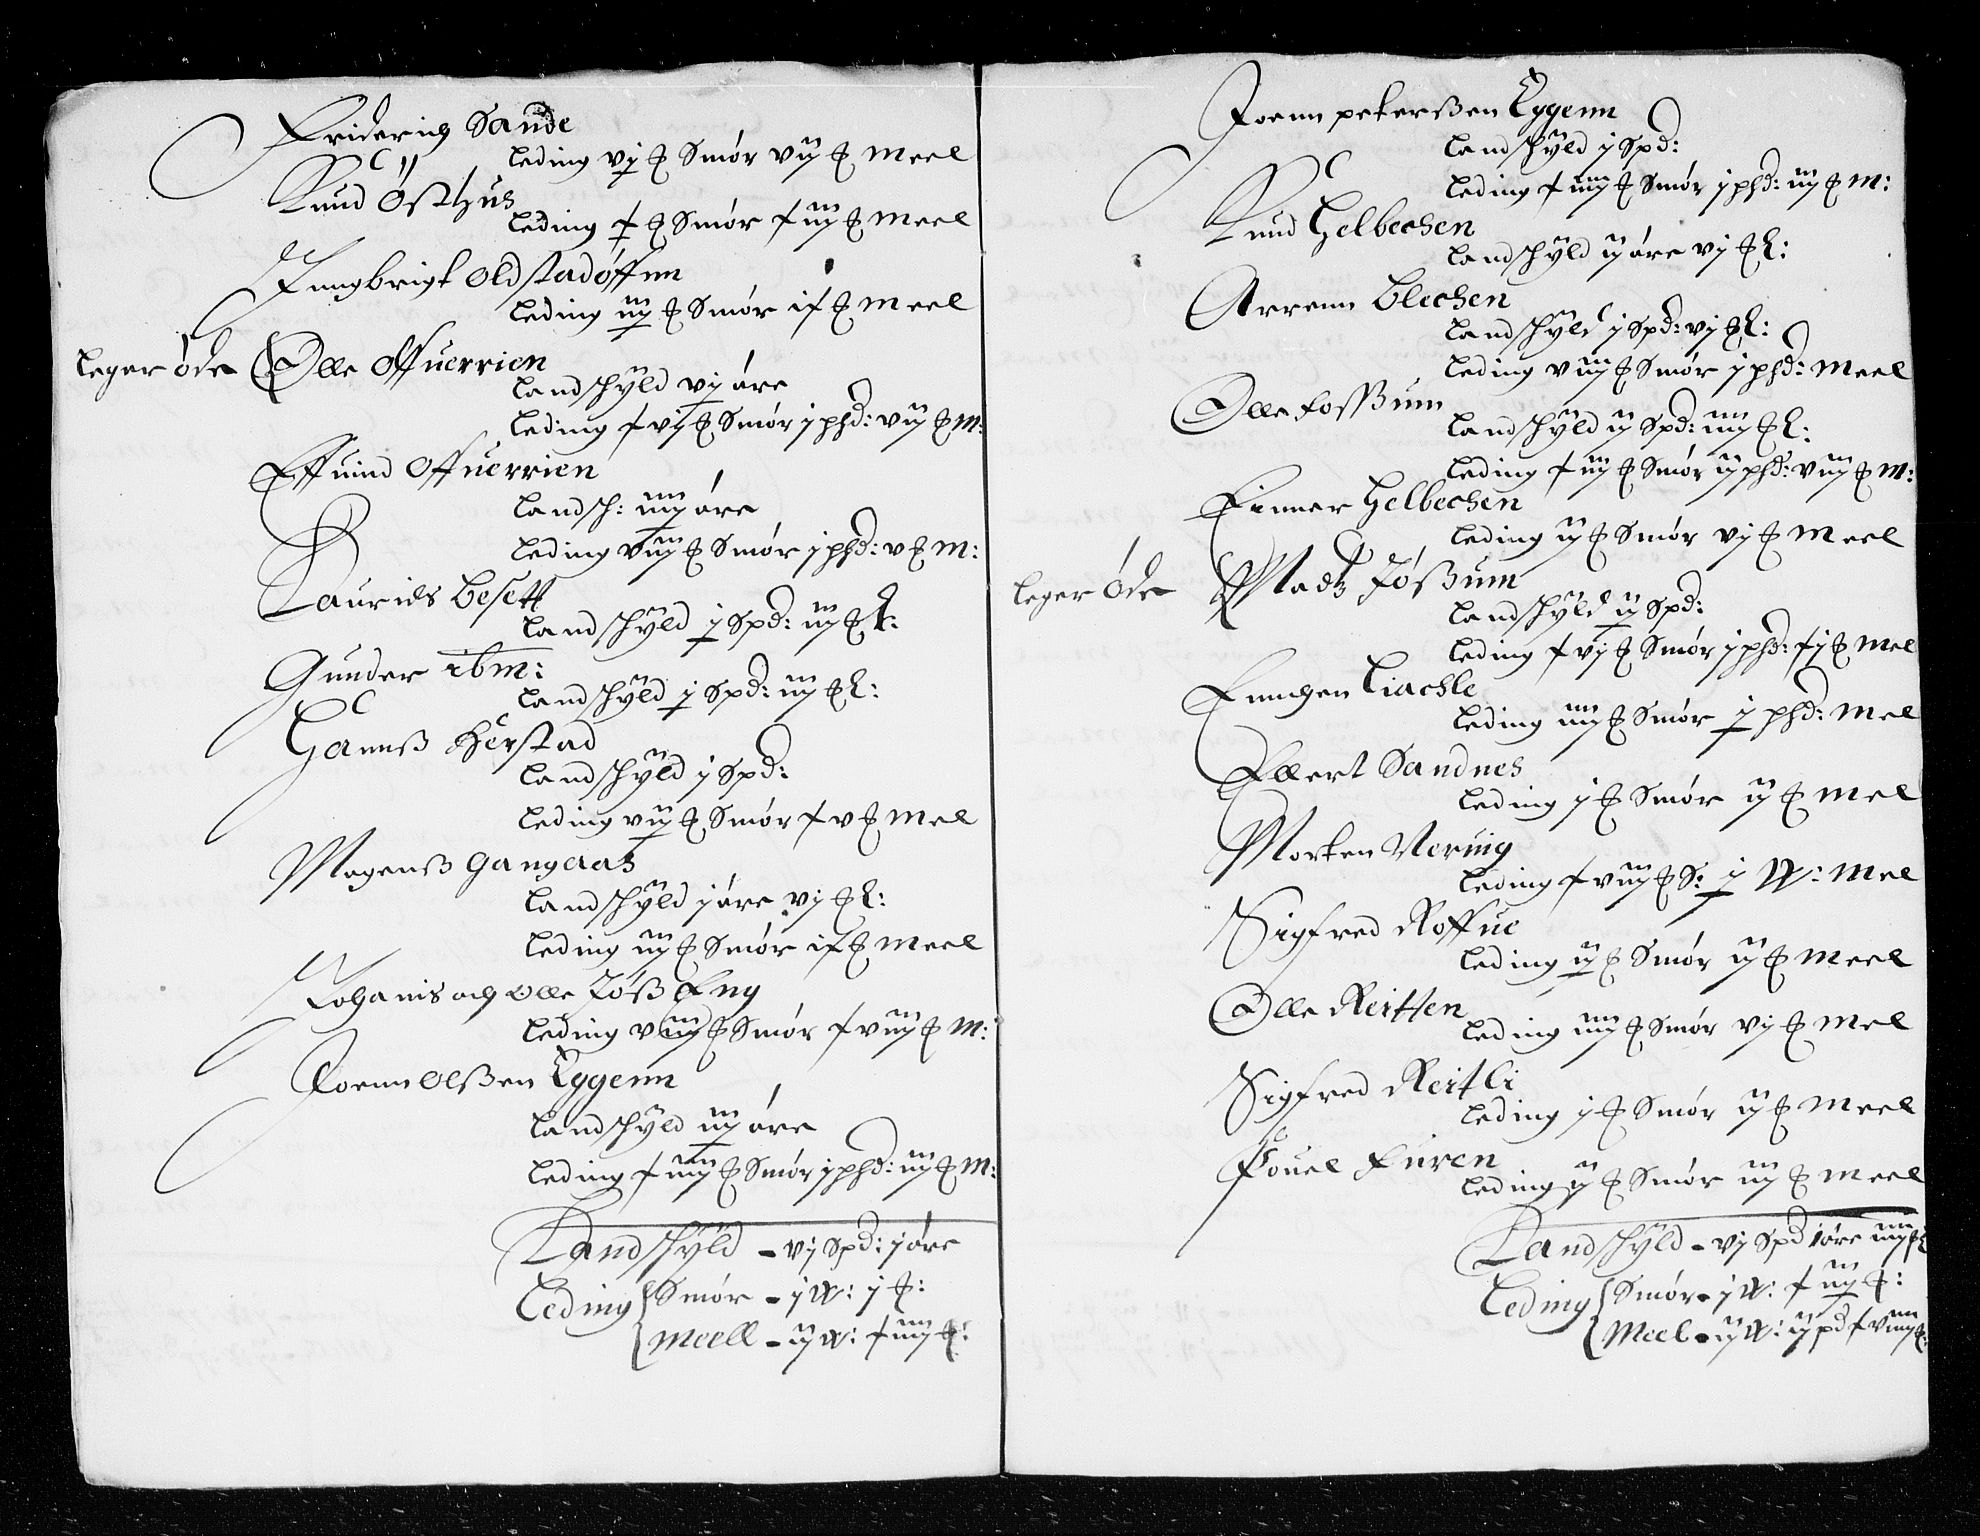 Friderich Sande
leding vj ℔ Smör vij ℔ Meel
Knud Østhus
leding x ℔ Smör x iij ℔ Meel
Jungbrigt Oldstadøffnn
leding iij ℔ Smör ix ℔ Meel
leger øde Olle Offuerrien
landschÿld vj öre
leding x vj ℔ Smör j phd: vij ℔ M:
Effuind Offuerrien
landsch: iiij öre
leding viij ℔ Smör j phd: v ℔ M:
Laurids Besett
landschÿld j Spd: iij ℔
Gunder ibm:
landschÿld j Spd: iij ℔
Hannß Herstad
landschÿld j Spd:
leding vij ℔ Smör x v ℔ Mel
Mogenß Gangeaas
landschÿld j öre vj ℔
leding iij ℔ Smör ix ℔ Meel
Johanis och Olle Jöß Eng
leding viij ℔ Smör x viij ℔ M:
Joenn Olßen Eggenn
landschÿld iij öre
leding x iiij ℔ Smör j phd: iij ℔ M:
Landschÿld - vj Spd: j öre
Leding Smör - j W: j ℔:
Meell - ij W: x iiij ℔:
Joenn peterßen Eggenn
landschÿld j Spd:
leding x iiij ℔ Smör j phd: iij ℔ M:
Knud Helbechen
landschÿld ij öre vj ℔
Arrenn Blechen
landschÿld j Spd: vj ℔
leding viij ℔ Smör j phd: Meel
Olle Fossßum
landschÿld ij Spd: iiij ℔
leding x iij ℔ Smör ij phd: viij ℔ M:
Einner Helbechen
leding ij ℔ Smör vj ℔ Meel
leger øde Madtz Jößum
landschÿld ij Spd:
leding x vj ℔ Smör j phd: x j ℔ Mel
Enngen Liachle
leding iiij ℔ Smör j phd: Mel
Ellert Sandnes
leding j ℔ Smör ij ℔ Mel
Morten Nering
leding x viij ℔ S: j W: Mel
Sigfred Roffue
leding ij ℔ Smör ij ℔ Meel
Olle Reitten
leding iiij ℔ Smör vj ℔ Mel
Sigfred Reitli
leding j ℔ Smör ij ℔ Meel
Pouel Furen
leding ij ℔ Smör iij ℔ Meel
Landschÿld - vj Spd 1 öre iiij ℔
Leding Smör - j W: x iij ℔:
Meel - ij W: ij pd x viiij ℔: